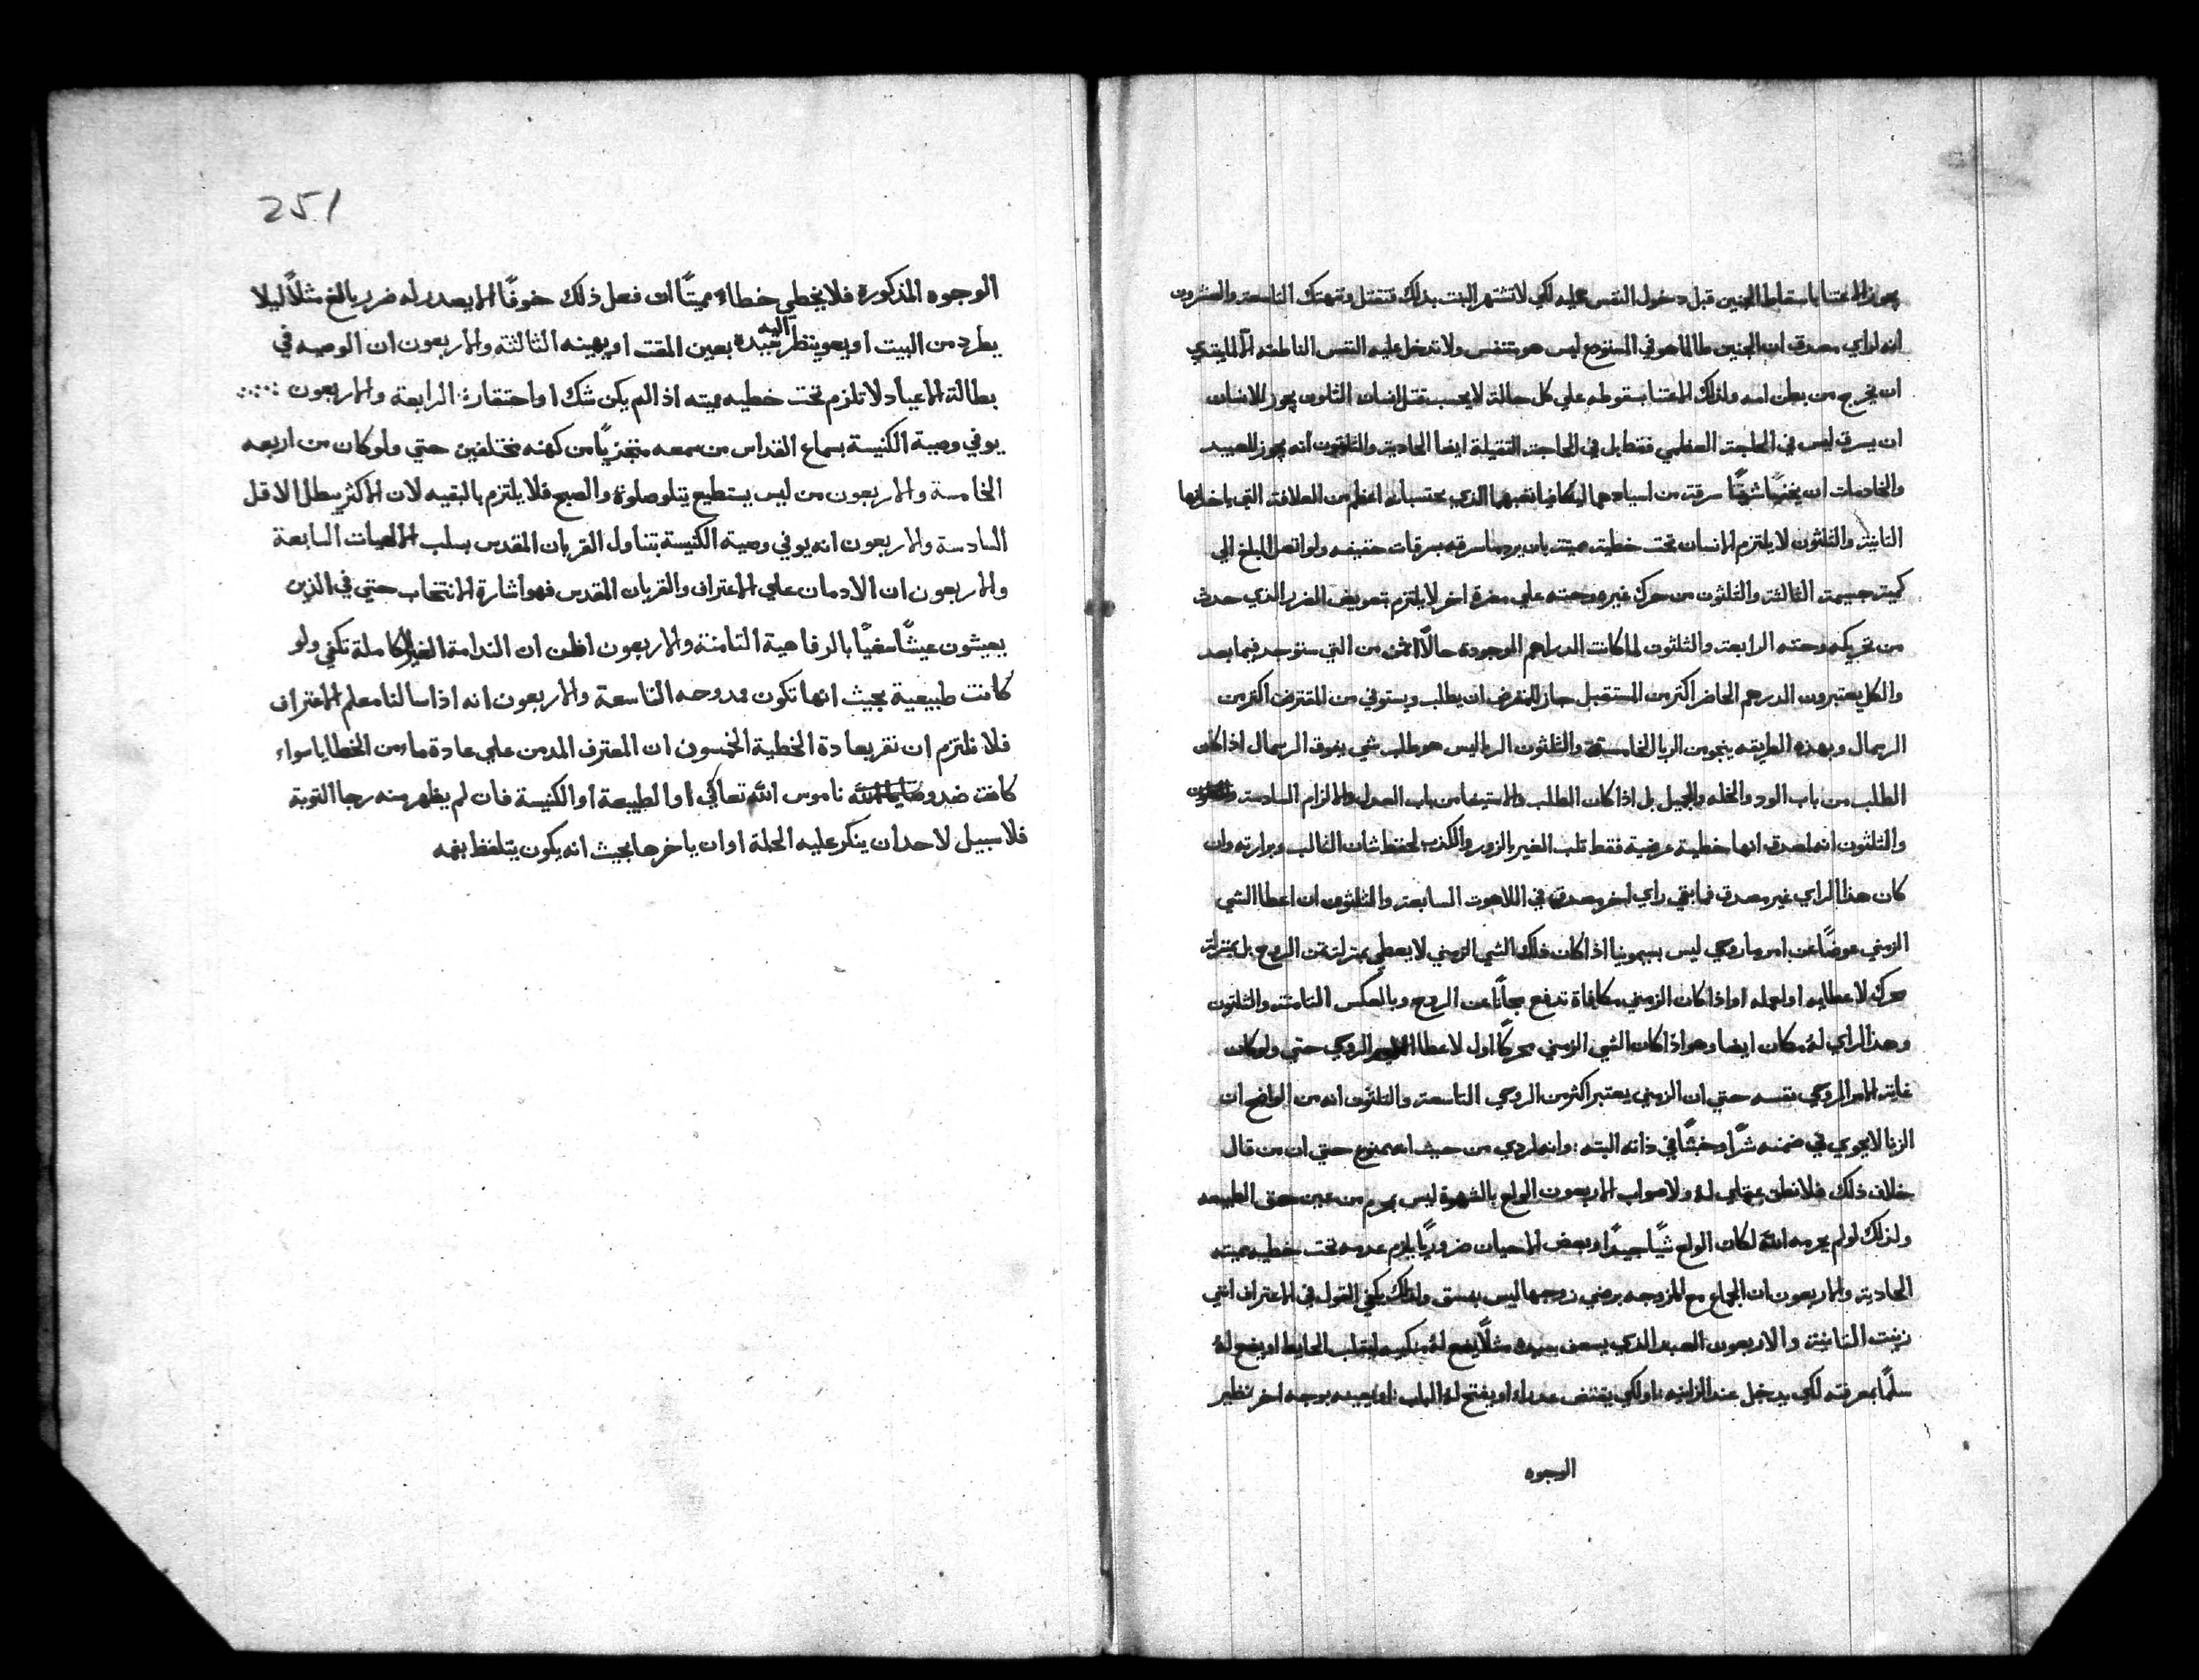 يجوز الاعتنا باسقاط الجنين قبل دخول النفس عليه لكي لا تشتهر البنت بذلك فتقتل وتهتك التاسعة والعشرون
انه لراي مصدق ان الجنين طالما هو في المستودع ليس هو متنفس ولا تدخل عليه النفس الناطقه الّا لما يبتدي
ان يخرج من بطن امه ولذلك الاعتنا بسقوطه علي كل حالة لا يحسب قتل انسان الثلثون يجوز للانسان
ان يسرق ليس في الحاجة العظمي فقط بل في الحاجة الثقيلة ايضا الحادية والثلثون انه يجوز للعبيد
والخادمات ان يختبوا شيًا سرقة من اسيادهما ليكافيا تعبهما الذي يحتسبانه اعظم من العلافة التي ياخذانها
الثانية والثلثون لا يلتزم الانسان تحت خطية مميتة بان يرد ما سرقه بسرقات خفيفه ولو اتصل المبلغ الي
كمية جسيمة الثالثة والثلثون من حرك غيره وحثه علي مضرة اخر لا يلتزم بتعويض الضرر الذي حدث
من تحريكه وحثه الرابعة والثلثون لما كانت الدراهم الموجودة حالًا اثمن من التي ستوجد فيما بعد
والكل يعتبرون الدرهم الحاضر اكثر من المستقبل جاز للمقرض ان يطلب ويستوفي من المقترض اكثر من
الرسمال وبهذه الطريقه ينجو من الربا الخامسة والثلثون الربا ليس هو طلب شي يفوق الرسمال اذا كان
الطلب من باب الود والخله والجميل بل اذا كان الطلب والاستيفا من باب العدل والالزام السادسة
والثلثون انه اصدق انها خطية عرضية فقط ثلب الغير بالزور والكذب لحفظ شان الثالب وبرارته وان
كان هذا الراي غير مصدق فما بقي راي اخر مصدق في اللاهوت السابعة والثلثون ان اعطا الشي
الزمني عوضًا عن امر ما روحي ليس بسيمونيا اذا كان ذلك الشي الزمني لا يعطي بمنزلة ثمن الروح بل بمنزلة
محرك لاعطايه او لعمله او اذا كان الزمني مكافاة تدفع مجانًا عن الروح وبالعكس الثامنة والثلثون
وهذا الراي له مكان ايضا وهو اذا كان الشي الزمني محركًا اول لاعطا الروحي حتي ولو كان
غاية الامر الروحي نفسه حتي ان الزمني يعتبر اكثر من الروحي التاسعة والثلثون انه من الواضح ان
الزنا لا يحوي في ضمنه شرًّا وخبثًا في ذاته البته : وانه لردي من حيث انه ممنوع حتي ان من قال
خلاف ذلك فلا نطق عقلي له ولا صواب الاربعون الولع بالشهوة ليس بمحرم من عين حق الطبيعه
ولذلك لو لم يحرمه الله لكان الولع شيًا جيدًا وبعض الاحيان ضروريًا يلزم عدمه تحت خطيه مميته
الحادية والاربعون ان الجماع مع المزوجه برضي زوجها ليس بفسق ولذلك يكفي القول في الاعتراف انني
زنيت الثانية والاربعون العبد الذي يسعف سيده مثلًا يضع له منكبيه ليقلب الحايط او يضع له
سلمًا بمعرفته لكي يدخل عند الزانيه : او لكي يفتض عذراء او يفتح له الباب : او يعينه بوجه اخر نظير
الوجوه
251
الوجوه المذكورة فلا يخطي خطاء مميتًا ان فعل ذلك خوفًا الا يصدر له ضرر بالغ مثلًا ليلا
يطرد من البيت او يعو ينظر اليه سيده بعين المقت او يهينه الثالثه والاربعون ان الوصيه في
بطالة الاعياد لا تلزم تحت خطيه مميته اذا لم يكن شك او احتقار : الرابعة والاربعون
يوفي وصية الكنيسة بسماع القداس من سمعه متجزيًا من كهنه مختلفين حتي ولو كان من اربعه
الخامسة والاربعون من ليس يستطيع يتلو صلوة والصبح فلا يلتزم بالبقيه لان الاكثر يبطل الاقل
السادسة والاربعون انه يوفي وصية الكنيسة بتناول القربان المقدس بسلب الالهيات السابعة
والاربعون ان الادمان علي الاعتراف والقربان المقدس فهو اشارة الانتخاب حتي في الذين
يعيشون عيشًا صغيًا بالرفاهية الثامنة والاربعون اظن ان الندامة الغير الكاملة تكفي ولو
كانت طبيعية بحيث انها تكون ممدوحه التاسعة والاربعون انه اذا سالنا معلم الاعتراف
فلا نلتزم ان نقر بعادة الخطية الخمسون ان المعترف المدمن علي عادة ما من الخطايا سواء
كانت ضد وصايا الله ناموس الله تعالي او الطبيعة او الكنيسة فان لم يظهر منه رجا التوبة
فلا سبيل لاحد ان ينكر عليه الحلة او ان ياخرها بحيث انه يكون يتلفظ بفمه